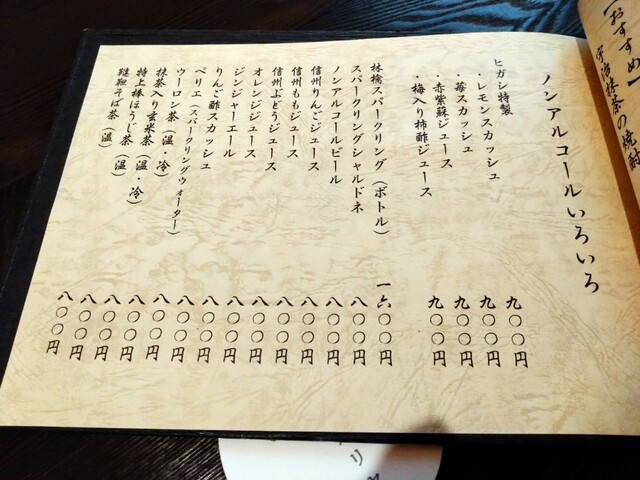 【おすすめ】
宇治抹茶の焼酎
ノンアルコールいろいろ
ヒガシ特製
・レモンスカッシュ 九〇〇円
・苺スカッシュ 九〇〇円
・赤紫蘇ジュース 九〇〇円
・梅入り柿酢ジュース 九〇〇円
林檎スパークリング(ボトル) 一六〇〇円
スパークリングシャルドネ 八〇〇円
ノンアルコールビール 八〇〇円
信州りんごジュース 八〇〇円
信州ももジュース 八〇〇円
信州ぶどうジュース 八〇〇円
オレンジジュース 八〇〇円
ジンジャーエール 八〇〇円
りんご酢スカッシュ 八〇〇円
ペリエ(スパークリングウォーター) 八〇〇円
ウーロン茶 八〇〇円
抹茶入り玄米茶(温・冷) 八〇〇円
特上棒ほうじ茶(温・冷) 八〇〇円
韃靼そば茶(温) 八〇〇円